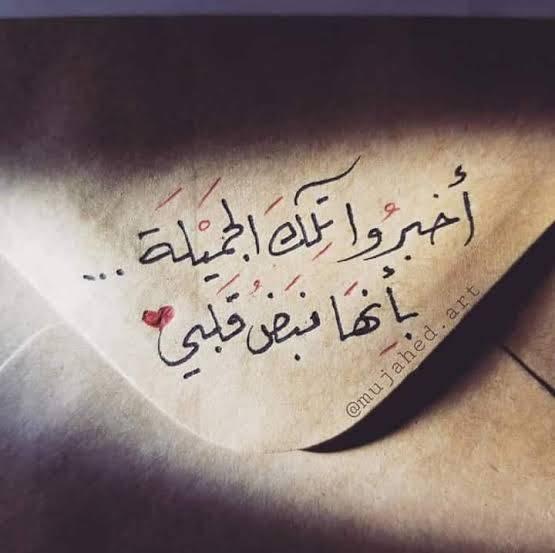 أخبرُوا تِلكَ الجَميْلَة ...
بأنهَا نبَضُ قَلبي
@mujahed.art